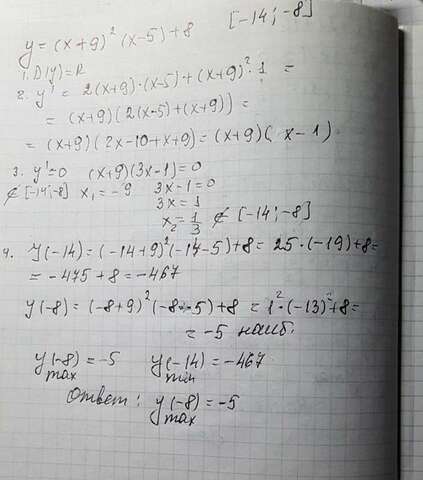 y = (x+9)² (x-5)+8 [-14; -8]
1. D(y)=R
2. y' = 2(x+9)·(x-5)+(x+9)²·1 =
= (x+9)(2(x-5)+(x+9)) =
= (x+9)(2x-10+x+9) = (x+9)( x-1)
3. y'=0 (x+9)(3x-1)=0
∉ [-14; -8] x₁ = -9 3x-1=0
3x = 1
x₂ = 1/3 ∉ [-14; -8]
4. y(-14) = (-14+9)²(-14-5)+8 = 25·(-19)+8=
= -475+8 = -467
y(-8) = (-8+9)²(-8-5)+8 = 1²·(-13)+8=
= -5 наиб.
y max (-8) = -5 y min (-14) = -467
Ответ: y max (-8) = -5